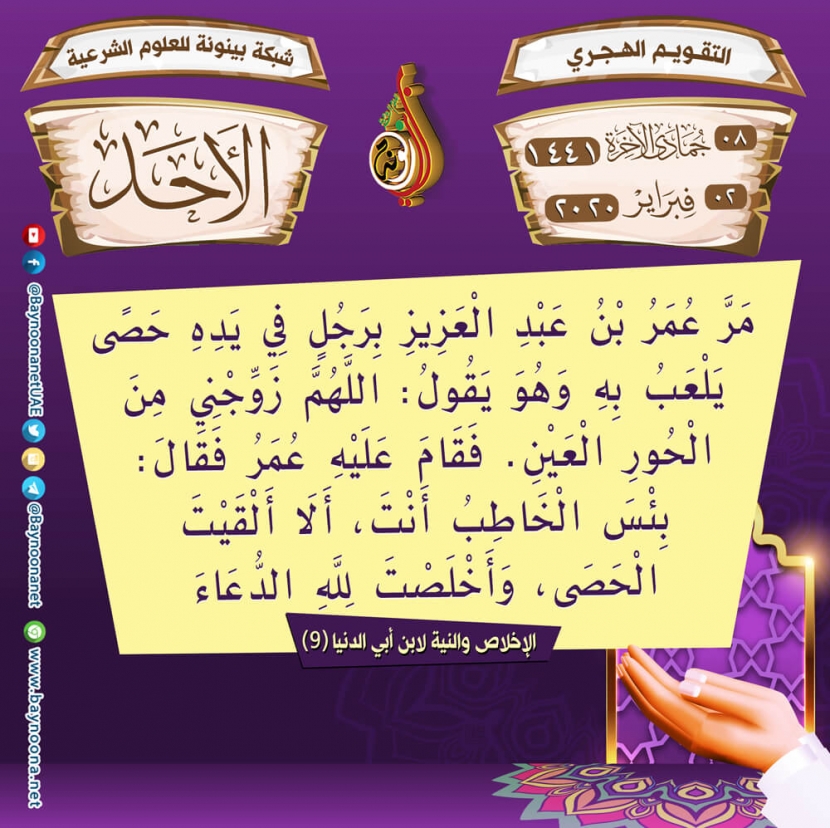 شبكة بينونة للعلوم الشرعية
التقويم الهجري
الأَحَد
٠٨ جُمَادَى الآخِرَة ١٤٤١
٠٢ فِبرَاير ٢٠٢٠
مَرَّ عُمَرُ بْنُ عَبْدِ الْعَزِيزِ بِرَجُلٍ فِي يَدِهِ حَصًى
يَلْعَبُ بِهِ وَهُوَ يَقُولُ: اللَّهُمَّ زَوِّجْنِي مِنَ
الْحُورِ الْعَيْنِ. فَقَامَ عَلَيْهِ عُمَرُ فَقَالَ:
بِئْسَ الْخَاطِبُ أَنْتَ، أَلَا أَلْقَيْتَ
الْحَصَى، وَأَخْلَصْتَ لِلَّهِ الدُّعَاءَ
الإخلاص والنية لابن أبي الدنيا (9)
@BaynoonanetUAE
@Baynoonanet
www.baynoona.net